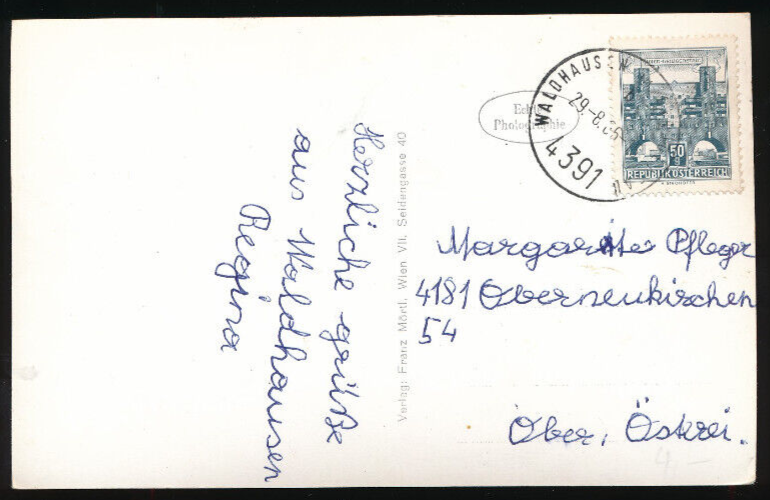 Herzliche grüße
aus Waldhausen
Regina
Verlag: Franz Mörtl, Wien VII, Seidengasse 40
Echte
Photographie
WALDHAUSEN
29.-8.66
4391
50 g
REPUBLIK ÖSTERREICH
Margarete Pfleger
4181 Oberneukirchen
54
Ober, Österei.
4,–